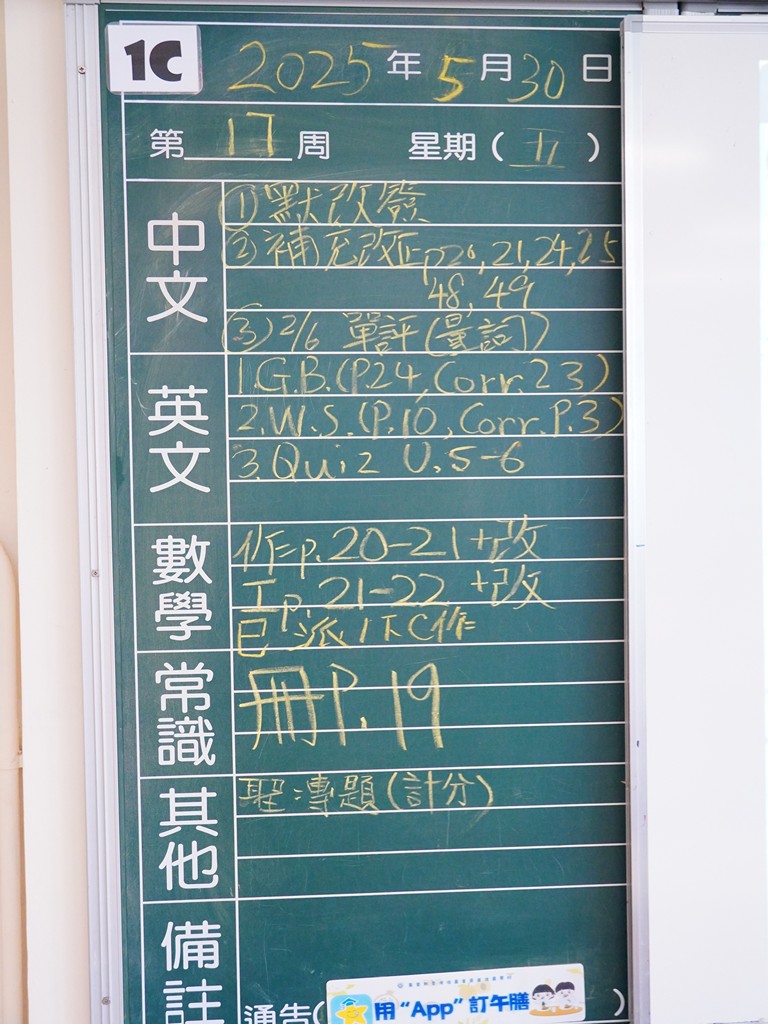 1C 2025年5月30日
第17周 星期(五)
中文
①默改發
②補充改正p20,21,24,25
48,49
③2/6 單評(量詞)
英文
1.G.B.(P.24,Corr.23)
2.W.S.(P.10,Corr.P.3)
3.Quiz U.5-6
數學
作p.20-21+改
工p.21-22 +改
已派下C作
常識
冊P.19
其他
專題(計分)
備註
通告( )
用“App”訂午膳